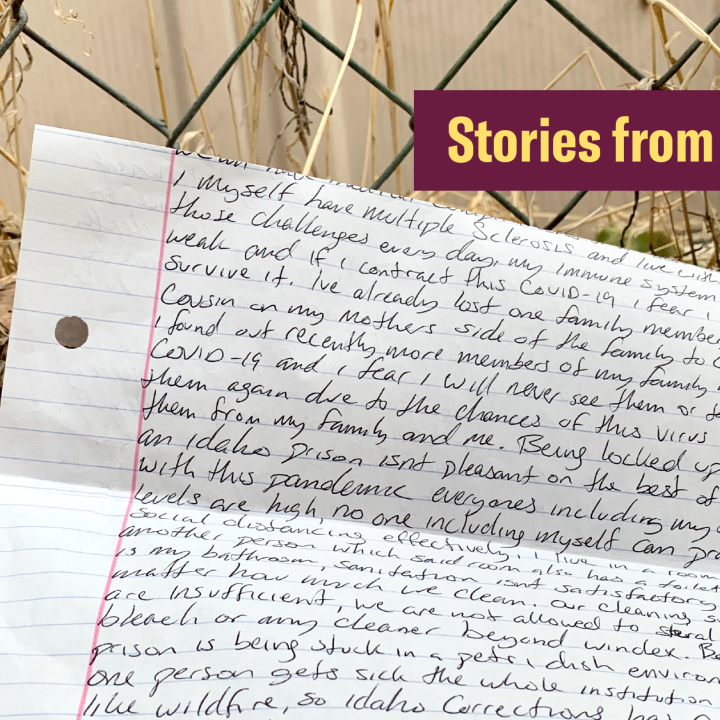 Stories from
I myself have multiple Sclerosis and I've
those challenges every day, my immune system
weak and if I contract this COVID-19 I fear I
survive it. I've already lost one family member
Cousin on my Mothers side of the family to
I found out recently more members of my family
COVID-19 and I fear I will never see them or
them again due to the chances of this virus
them from my family and me. Being locked up
an idaho prison isnt pleasant on the best of
with this pandemic everyones including my
levels are high, no one including myself can
social distancing effectively, I live in a room
another person which said room also has a toilet
is my bathroom, sanitation isnt satisfactory
matter how much we clean. our cleaning
are insufficient, we are not allowed to
bleach or any cleaner beyond windex.
prison is being stuck in a petri dish environ
one person gets sick the whole institution
like wildfire, so idaho Corrections has